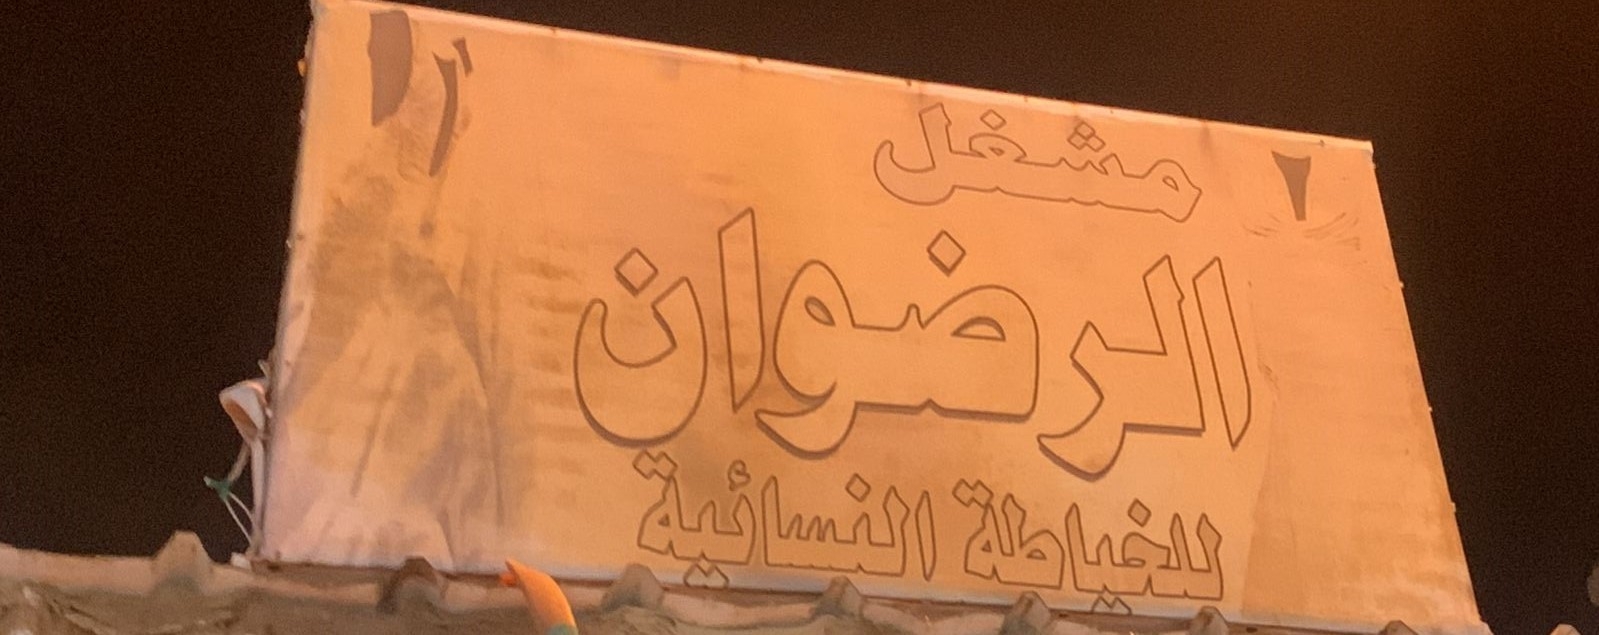 مشغل
الرضوان
للخياطة النسائية